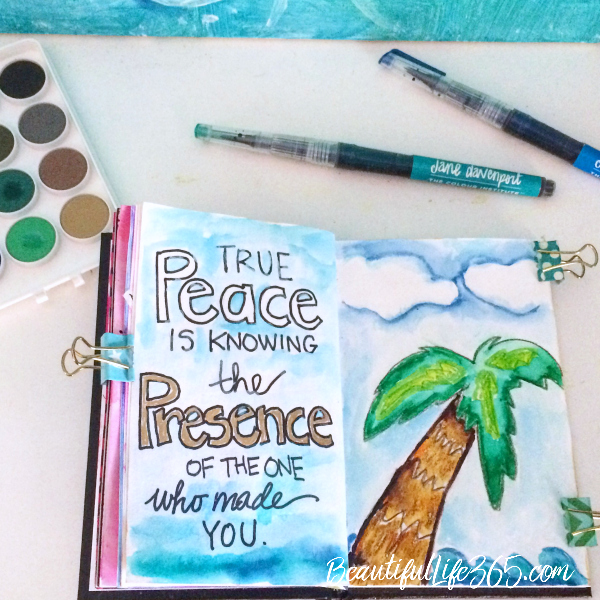 Jane Davenport
THE COLOUR INSTITUTE
TRUE
Peace
IS KNOWING
the
Presence
OF THE ONE
who made
YOU.
BeautifulLife365.com